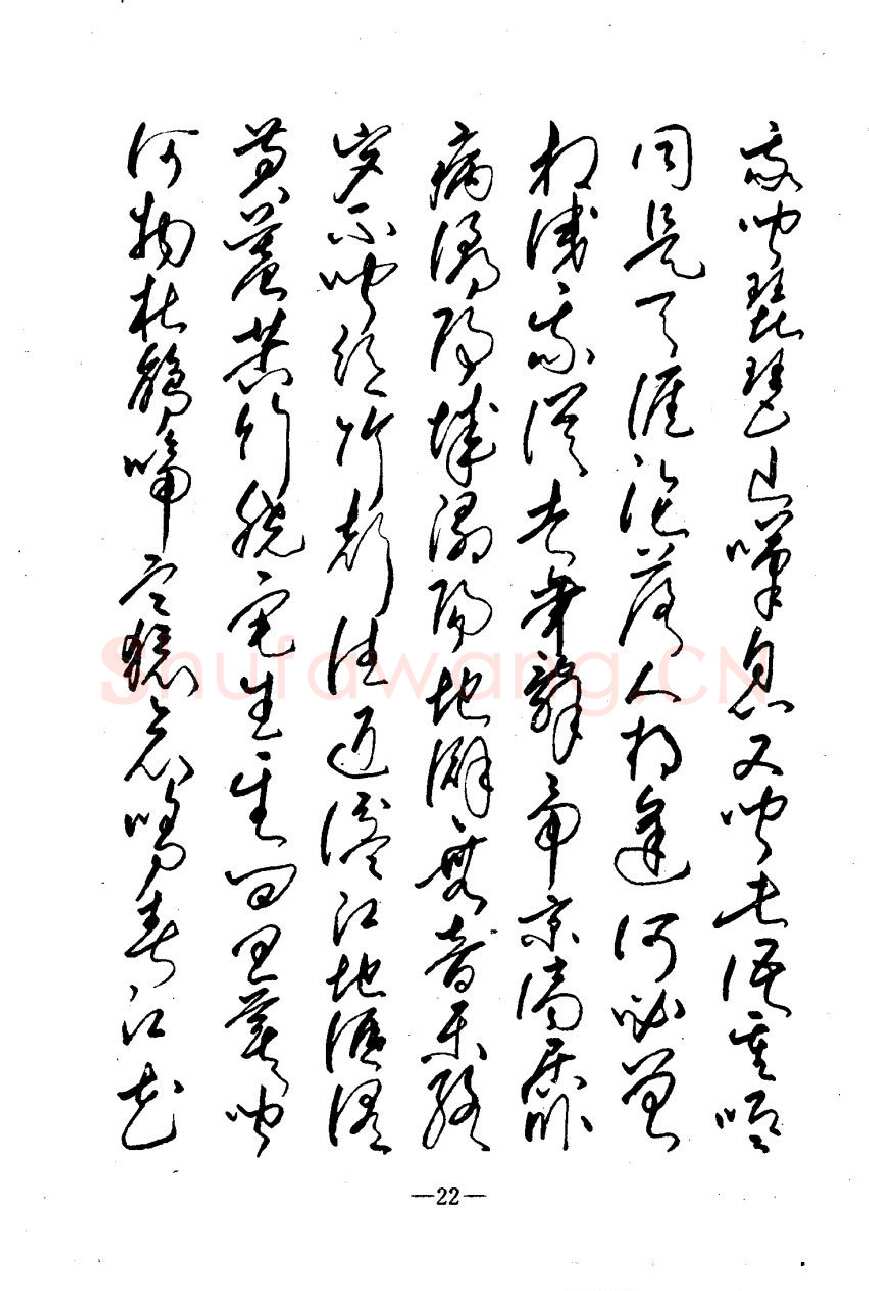 我闻琵琶已叹息又闻此语重唧唧
同是天涯沦落人相逢何必曾
相识我从去年辞帝京谪居卧
病浔阳城浔阳地僻无音乐终
岁不闻丝竹声住近湓江地低湿
黄芦苦竹绕宅生其间旦暮闻
何物杜鹃啼血猿哀鸣春江花
Shufawang.CN
—22—